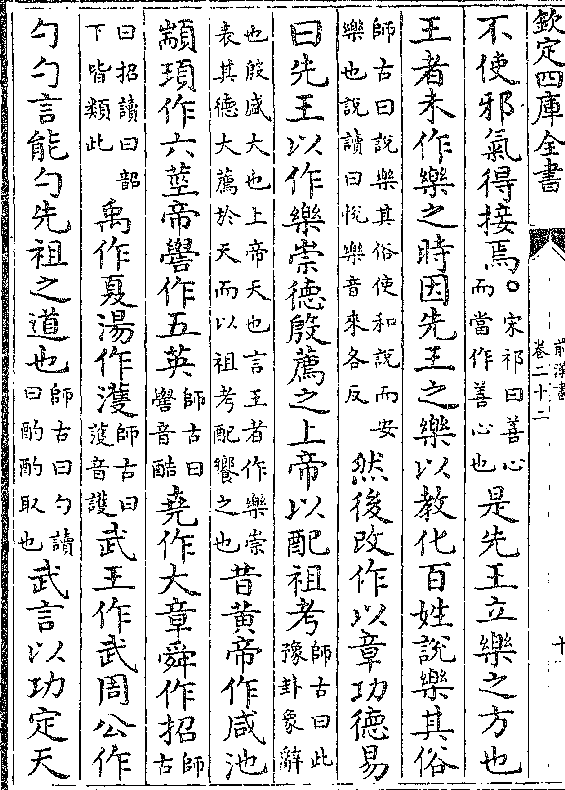 欽定四庫全書
前漢書
卷二十二
十
不使邪氣得接焉○宋祁曰善心而當作善心也是先王立樂之方也
王者未作樂之時因先王之樂以教化百姓說樂其俗
師古曰說樂其俗使和說而安樂也說讀曰悅樂音來各反然後改作以章功德易
曰先王以作樂崇德殷薦之上帝以配祖考師古曰此豫卦象辭
也殷盛大也上帝天也言王者作樂崇表其德大薦於天而以祖考配饗之也昔黃帝作咸池
顓頊作六莖帝嚳作五英師古曰嚳音酷堯作大章舜作招師古
曰招讀曰韶下皆類此禹作夏湯作濩師古曰濩音護武王作武周公作
勺勺言能勺先祖之道也師古曰勺讀曰酌酌取也武言以功定天